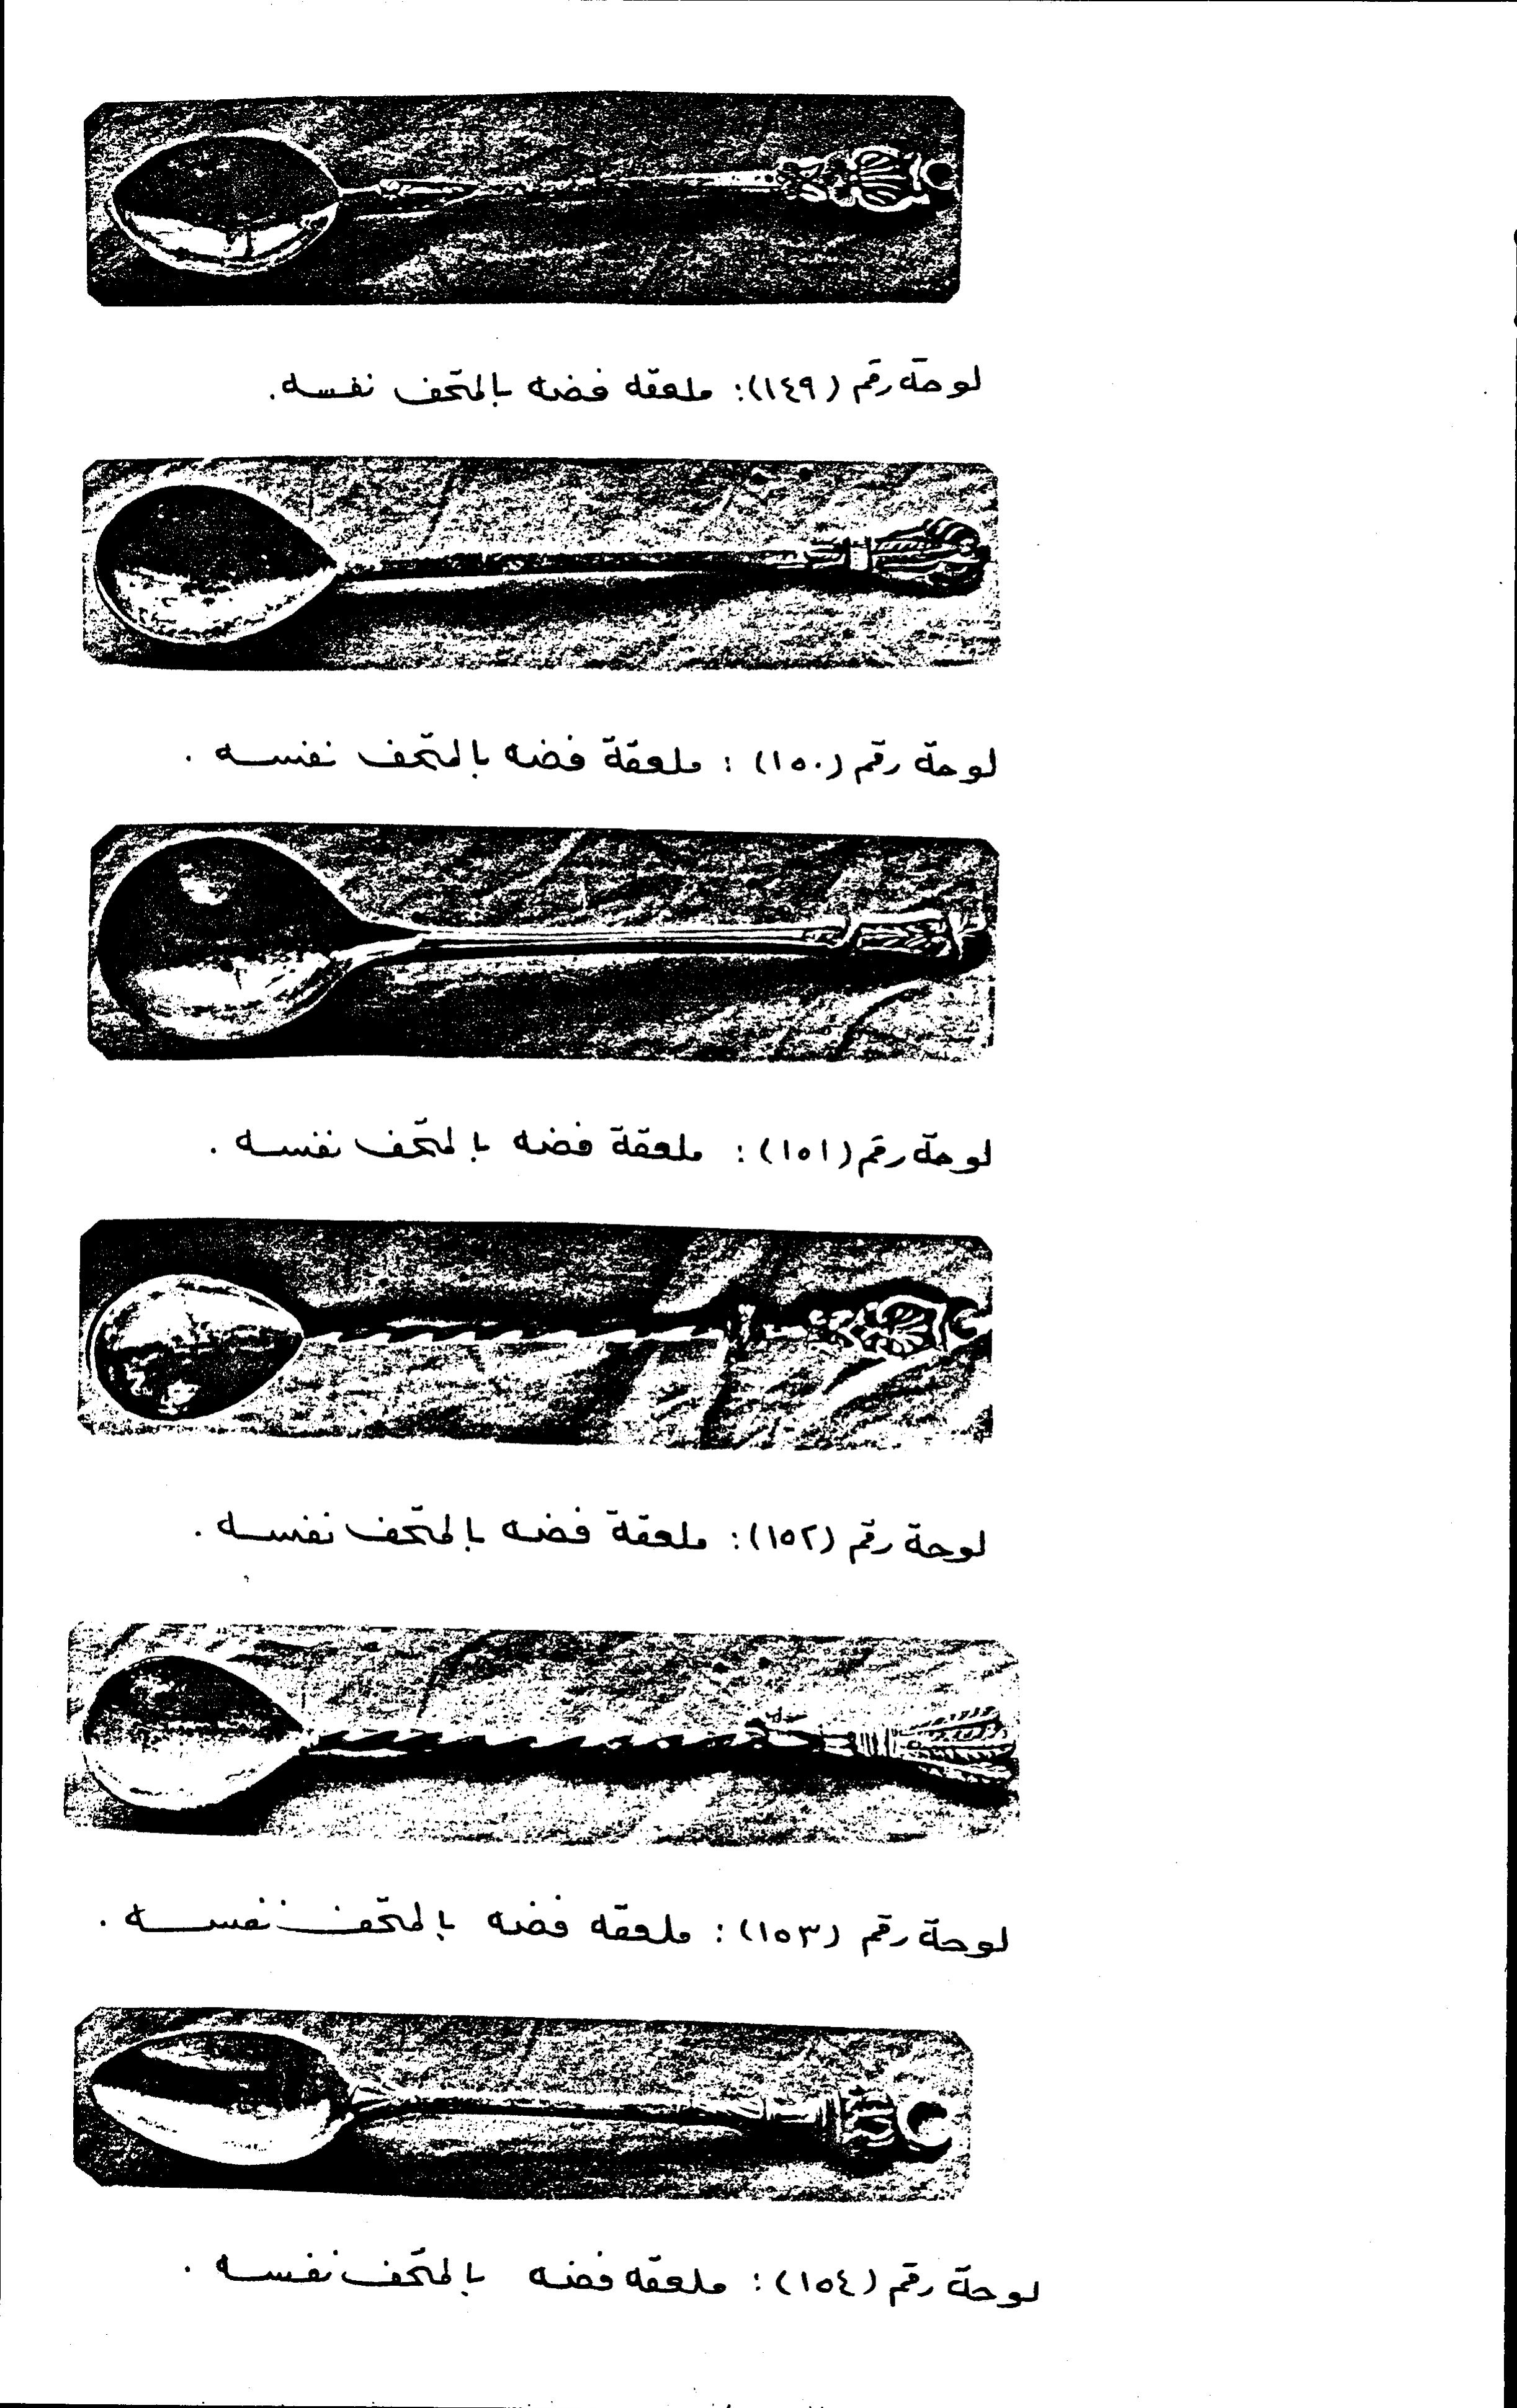 لوحة رقم (١٤٩): ملعقه فضه بالمتحف نفسه.
لوحة رقم (١٥٠) : ملعقة فضه بالمتحف نفسه .
لوحة رقم (١٥١) : ملعقة فضه بالمتحف نفسه .
لوحة رقم (١٥٢): ملعقة فضه بالمتحف نفسه .
لوحة رقم (١٥٣) : ملعقه فضه بالمتحف نفسه .
لوحة رقم (١٥٤) : ملعقه فضه بالمتحف نفسه .